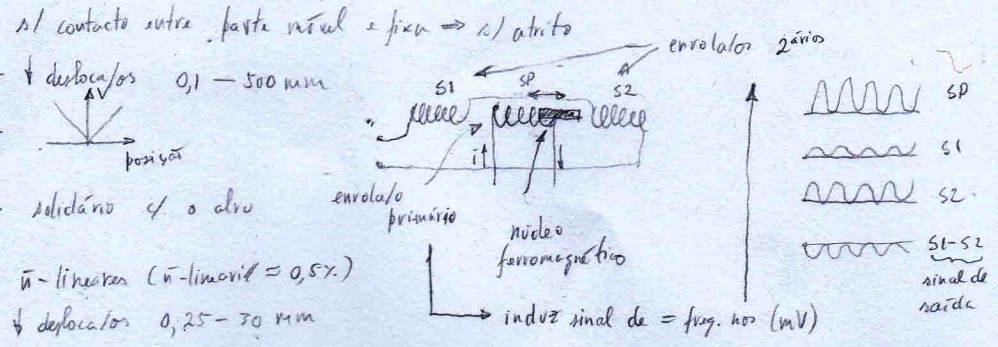 s/ contacto entre parte móvel e fixa ⇒ s/ atrito
- ↓ desloca/os 0,1 – 500 mm
V
posição
- solidário c/ o alvo
n̄-lineares (n̄-linearid ≈ 0,5%)
↓ desloca/os 0,25 – 30 mm
enrola/os 2ários
S1 SP S2
i
enrola/o primário
núcleo ferromagnético
induz sinal de = freq. nos (mV)
SP
S1
S2
S1-S2
sinal de
saída